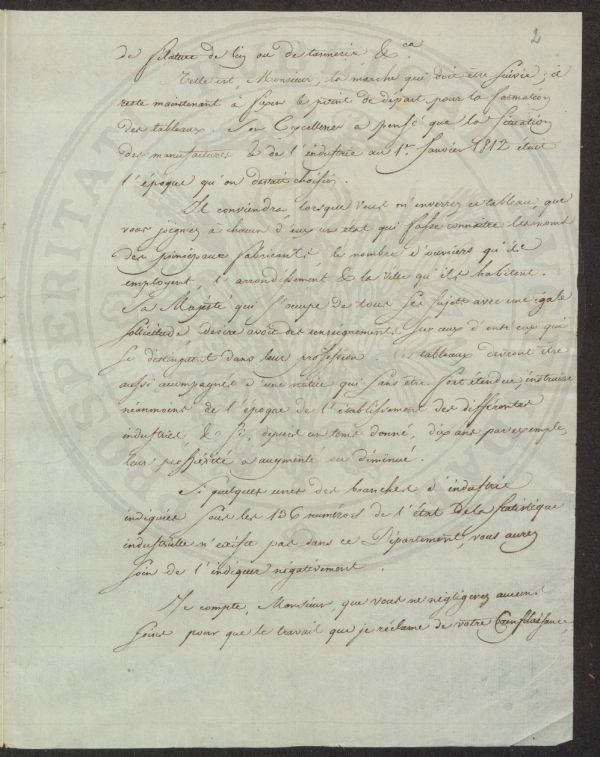 2
de filature de lin ou de tannerie &.ca
Telle est, Monsieur, la marche qui doit être suivie; il
reste maintenant à fixer le point de départ pour la formation
des tableaux. Son Excellence a pensé que la situation
des manufactures & de l'industrie au 1er Janvier 1812 était
l'époque qu'on devait choisir.
Il conviendra, lorsque vous m'enverrez ce tableau, que
vous joigniez à chacun d'eux un état qui fasse connaitre les noms
des principaux fabricants, le nombre d'ouvriers qu'ils
employent, l'arrondissement & la ville qu'ils habitent.
Sa Majesté qui s'occupe de tous ses sujets avec une égale
sollicitude, desire avoir des renseignements sur ceux d'entr'eux qui
se distinguent dans leur profession. Ces tableaux devront être
aussi accompagnés d'une notice qui sans être fort étendue, instruise
néanmoins de l'époque de l'établissement des différentes
industries, & si, depuis un tems donné, dix ans par exemple,
leur prospérité a augmenté ou diminué.
Si quelques unes des branches d'industrie
indiquées sous les 136 numéros de l'état de la Statistique
industrielle n'existe pas dans ce Département, vous aurez
soin de l'indiquer négativement.
Je compte, Monsieur, que vous ne négligerez aucuns
soins pour que le travail que je réclame de votre Complaisance
PROSPERITAT